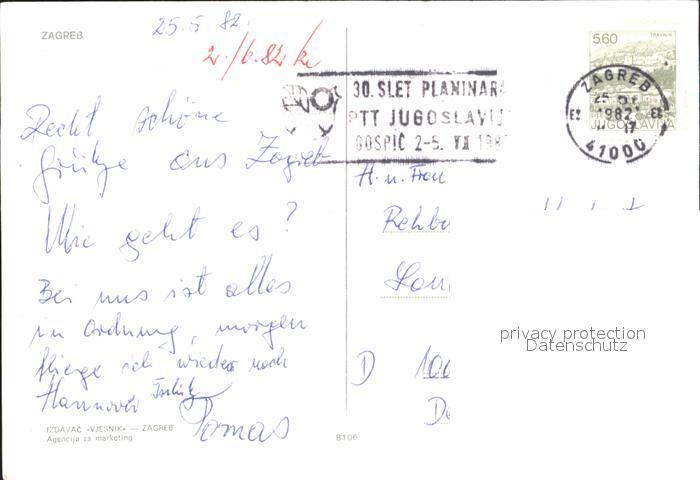 ZAGREB
25.5.82.
2./6.82
Recht schöne
Grüße aus Zagreb
Wie geht es?
Bei uns ist alles
in Ordnung, morgen
fliege ich wieder nach
Hannover Tschüß
Tomas
IZDAVAČ «VJESNIK» — ZAGREB
Agencija za marketing
8106
30. SLET PLANINAR
PTT JUGOSLAVIJ
GOSPIĆ 2-5. VII 198
5.60
TRAVNIK
JUGOSLAVIJA
ZAGREB
1982
41000
H. u. Frau
D
privacy protection
Datenschutz